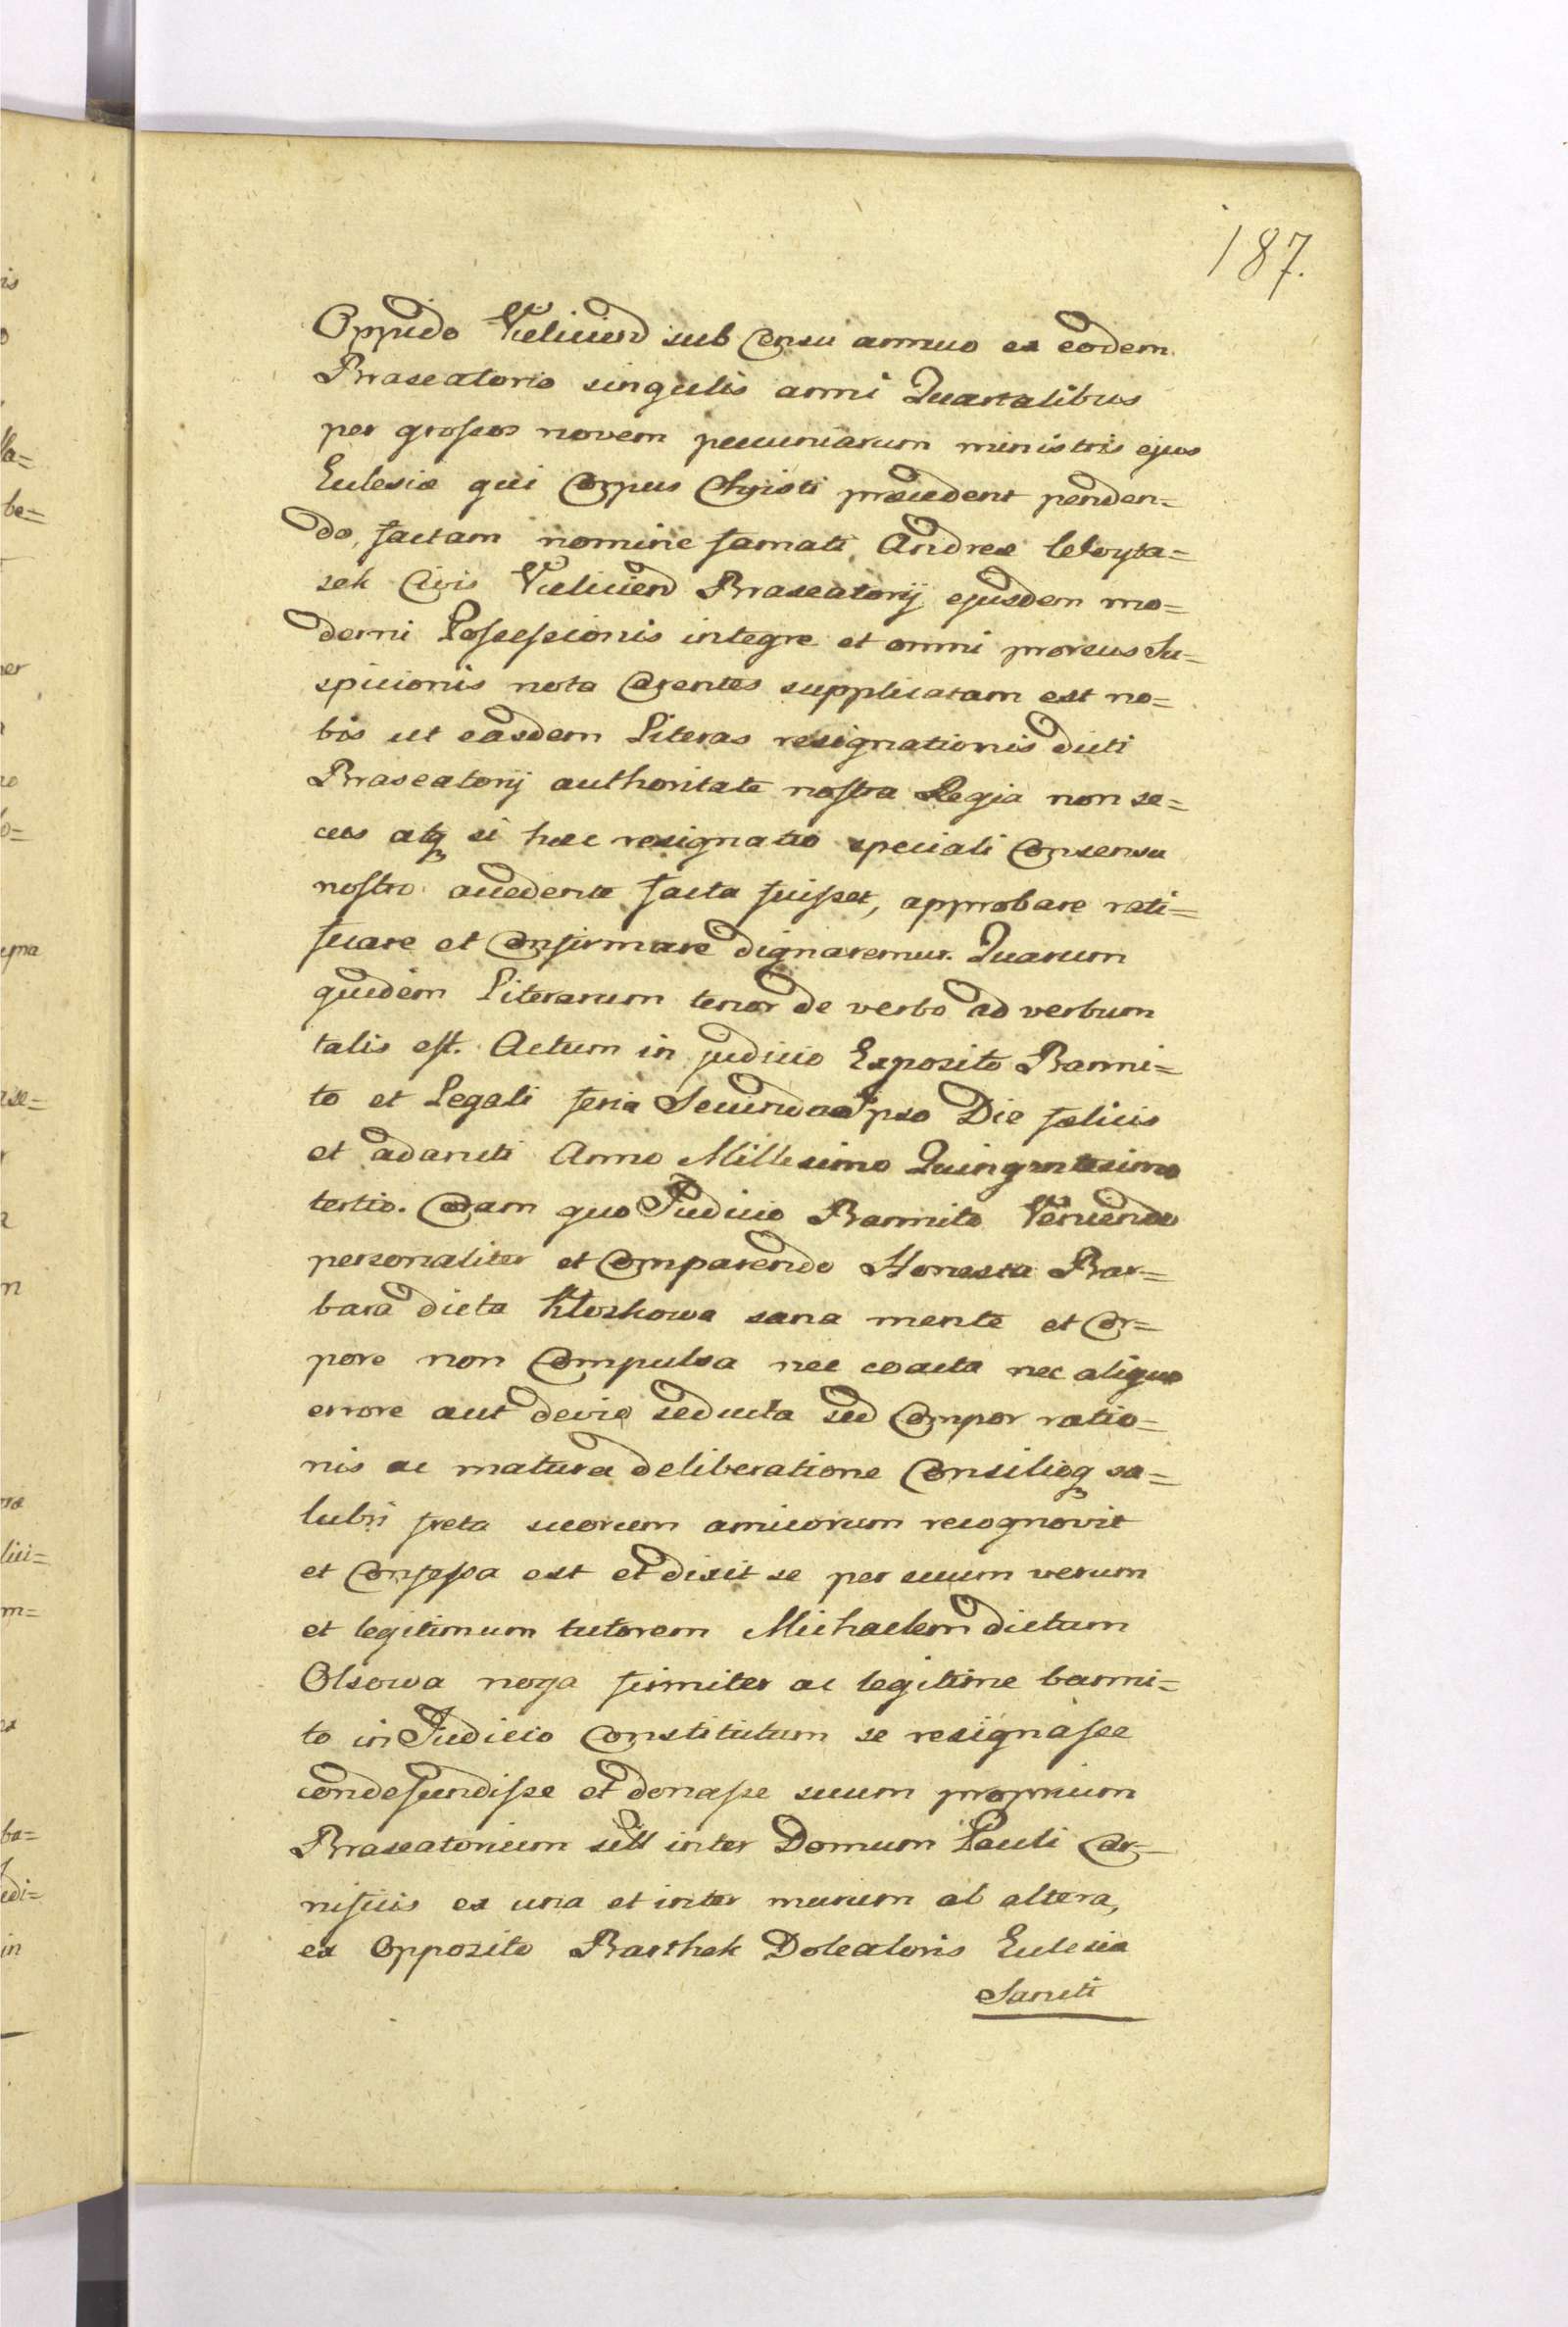 187.
Oppido Vielicien sub Censu annuo ex eodem
Braseatorio singulis anni Quartalibus
per grossos novem pecuniarum ministris ejus
Eclesiæ qui Corpus Christi præcedent penden=
do, factam nomine famati Andreæ Woyta=
sek Civis Vielicien Braseatorij ejusdem mo=
derni Possessionis integre et omni prorsus Su=
spicionis nota Carentes supplicatam est no=
bis ut easdem Literas resignationis dicti
Braseatorij authoritate nostra Regia non se=
cus atq si hæc resignatio speciali Consensu
nostro accedente facta fuisset, approbare rati=
ficare et Confirmare dignaremur. Quarum
quidem Literarum tenor de verbo ad verbum
talis est. Actum in judicio Exposito Banni=
to et Legali feria Secunda Ipso Die fælicis
et adaucti Anno Millesimo Quingentesimo
tertio. Coram quo Judicio Bannito Veniendo
personaliter et Comparendo Honesta Bar=
bara dicta Kloskowa sana mente et Cor=
pore non Compulsa nec coacta nec aliquo
errore aut devio seducta sed Compos ratio=
nis ac matura deliberatione Consilioq sa=
lubri freta suorum amicorum recognovit
et Confessa est et dixit se per suum verum
et legitimum tutorem Michaelem dictum
Olsowa noga firmiter ac legitime banni=
to in Judicio Constitutum se resignasse
condescendisse et donasse suum proprium
Braseatorium sitt inter Domum Pauli Car=
nificis ex una et inter murum ab altera,
ex Opposito Barthek Doleatoris Eclesia
Sancti
is
o
be=
er
o=
se=
lici=
m=
ba=
edi=
in